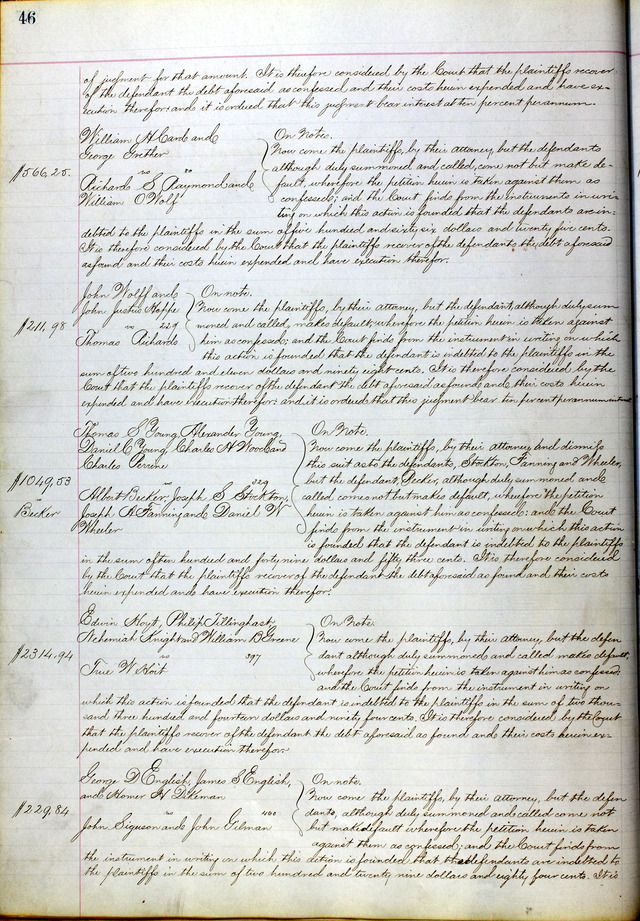 46
of judgment for that amount. It is therefore considered by the Court that the plaintiffs recover
of the defendant the debt aforesaid as confessed and their costs herein expended and have ex-
ecution therefor: and it is ordered that this judgment bear interest at ten percent per annum.
William H Card and
George Grether
$566,25.
vs
Richard S Raymond and
William O Wolf
On Note.
Now come the plaintiffs, by their attorney, but the defendants
although duly summoned and called, come not but make de-
fault, wherefore the petition herein is taken against them as
confessed; and the Court finds from the instruments in wri-
ting on which this action is founded that the defendants are in-
debted to the plaintiffs in the sum of five hundred and sixty six dollars and twenty five cents.
It is therefore considered by the Court that the plaintiffs recover of the defendants the debt aforesaid
as found and their costs herein expended and have execution therefor.
John Wolff and
John Justus Hoppe
$211,98
vs 229
Thomas Richards
On note.
Now come the plaintiffs, by their attorney, but the defendant, although duly sum
moned and called, makes default; wherefore the petition herein is taken against
him as confessed; and the Court finds from the instrument in writing on which
this action is founded that the defendant is indebted to the plaintiffs in the
sum of two hundred and eleven dollars and ninety eight cents. It is therefore considered by the
Court that the plaintiffs recover of the defendant the debt aforesaid as found, and their costs herein
expended and have execution therefor: and it is ordered that this judgment bear ten percent per annum interest
Thomas S Young, Alexander Young,
Daniel C Young, Charles H Woodland
Charles Perrine
$1049,53
vs
Becker
vs 329
Albert Becker, Joseph S Stockton,
Joseph A Fanning and Daniel W
Wheeler
On Note.
Now come the plaintiffs, by their attorney and dismiss
this suit as to the defendants, Stockton, Fanning and Wheeler,
but the defendant, Becker, although duly summoned and
called come not but makes default, wherefore the petition
herein is taken against him as confessed: and the Court
finds from the instrument in writing on which this action
is founded that the defendant is indebted to the plaintiffs
in the sum of ten hundred and forty nine dollars and fifty three cents. It is therefore considered
by the Court that the plaintiffs recover of the defendant the debt aforesaid as found and their costs
herein expended and have execution therefor.
Edwin Hoyt, Philip Tillinghast,
Nehemiah Knight and William B Greene
$2314.94
vs 397
True W Hoit
On Note.
Now come the plaintiffs, by their attorney, but the defen
dant although duly summoned and called makes default,
wherefore the petition herein is taken against him as confessed
and the Court finds from the instrument in writing on
which this action is founded that the defendant is indebted to the plaintiffs in the sum of two thou-
sand three hundred and fourteen dollars and ninety four cents. It is therefore considered by the Court
that the plaintiffs recover of the defendant the debt aforesaid as found and their costs herein ex-
pended and have execution therefor.
George D English, James S English,
and Homer H Dikeman
$229,84
vs 400
John Siguson and John Gilman
On note.
Now come the plaintiffs, by their attorney, but the defen
dants, although duly summoned and called come not
but make default wherefore the petition herein is taken
against them as confessed; and the Court finds from
the instrument in writing on which this action is founded that the defendants are indebted to
the plaintiffs in the sum of two hundred and twenty nine dollars and eighty four cents. It is